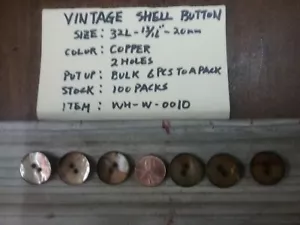 VINTAGE SHELL BUTTON
SIZE: 32L-13/16"-20mm
COLOR: COPPER
2 HOLES
PUT UP: BULK 6 PCS TO A PACK
STOCK: 100 PACKS
ITEM: WH-W-0010